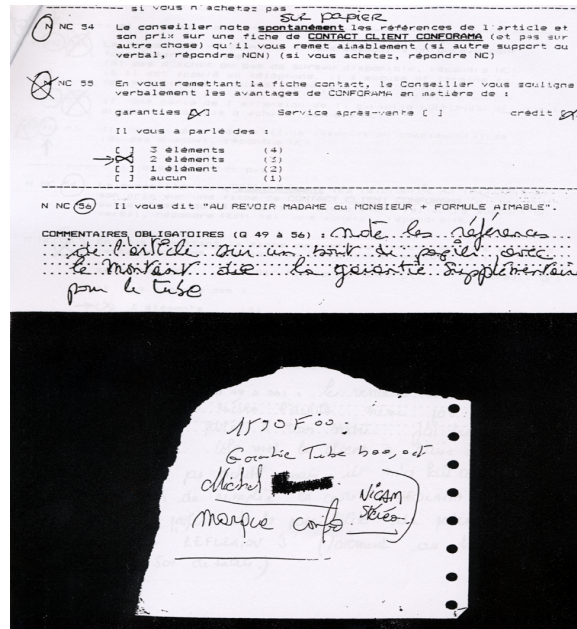 si vous n'achetez pas
sur papier
N NC 54 Le conseiller note spontanément les références de l'article et
son prix sur une fiche de CONTACT CLIENT CONFORAMA (et pas sur
autre chose) qu'il vous remet aimablement (si autre support ou
verbal, répondre NON) (si vous achetez, répondre NC)
NC 55 En vous remettant la fiche contact, le Conseiller vous souligne
verbalement les avantages de CONFORAMA en matière de :
garanties [X] Service après-vente [ ] crédit [X
Il vous a parlé des :
[ ] 3 éléments (4)
[X] 2 éléments (3)
[ ] 1 élément (2)
[ ] aucun (1)
N NC 56 Il vous dit "AU REVOIR MADAME ou MONSIEUR + FORMULE AIMABLE".
COMMENTAIRES OBLIGATOIRES (Q 49 à 56) : note les références
de l'article sur un bout de papier avec
le montant de la garantie supplémentaire
pour le tube
1590 F 00
Garantie Tube
Michel
NICAM
Stéréo
marque confo.